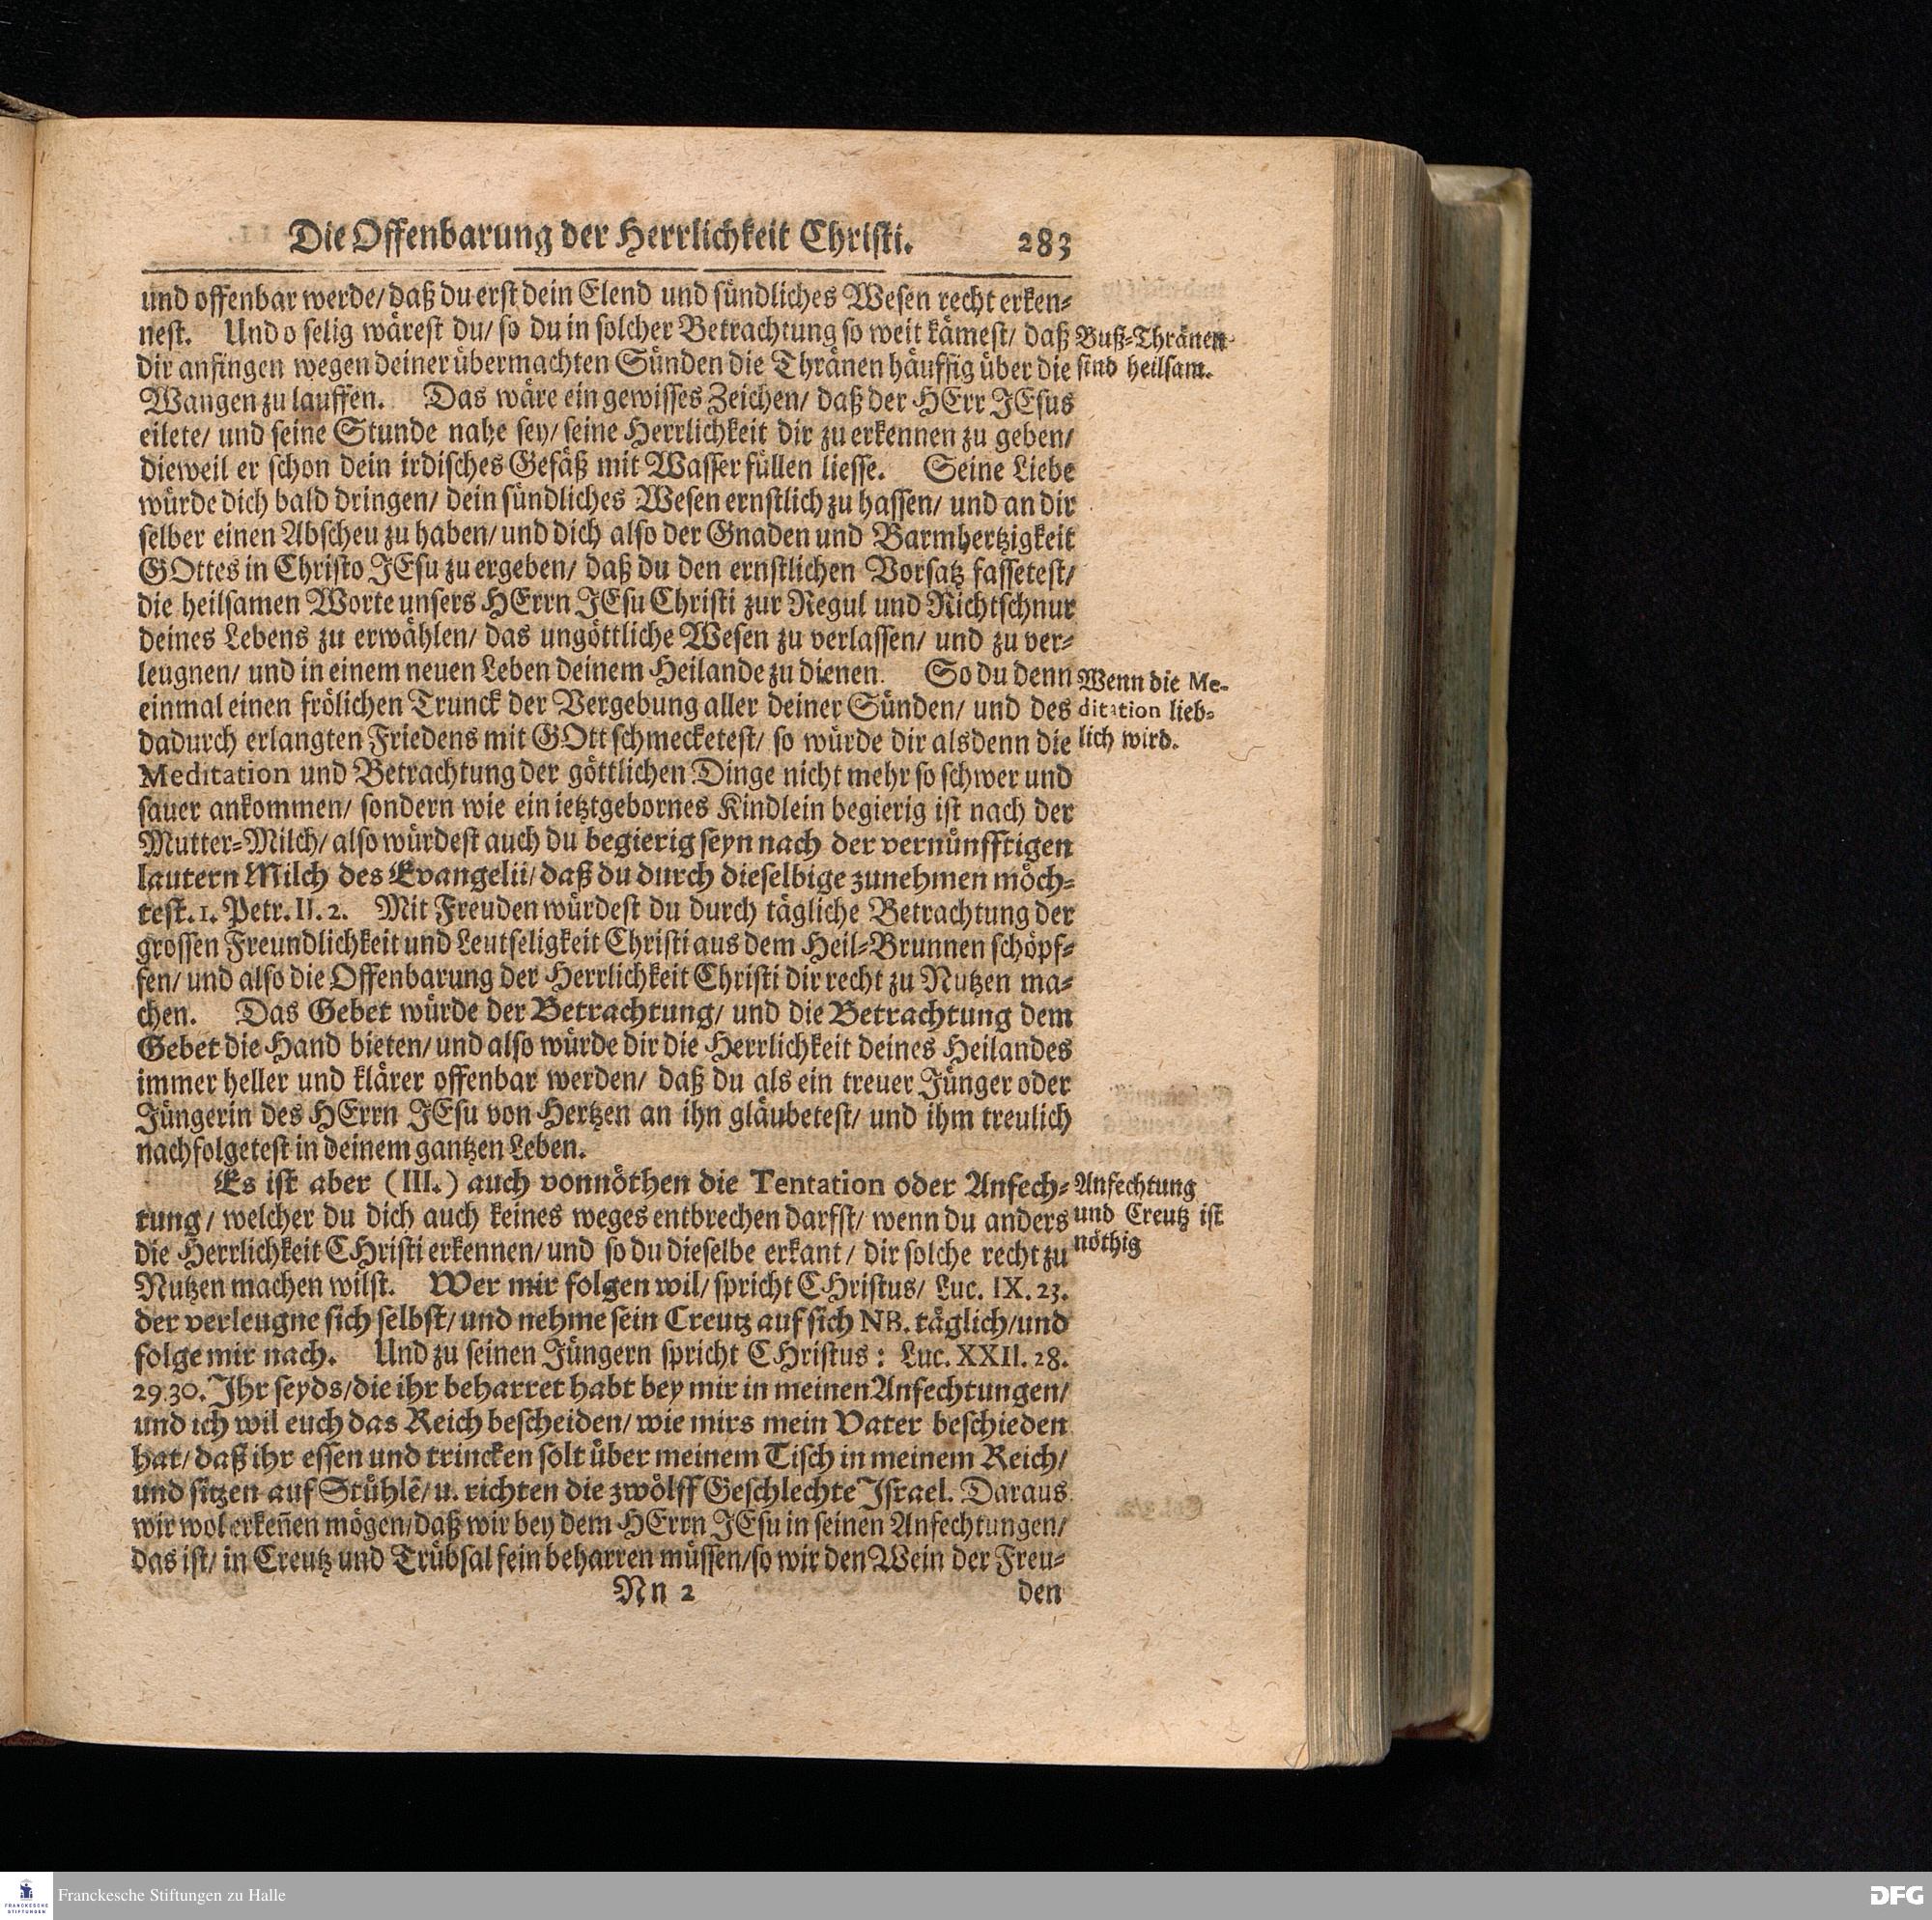 Die Offenbarung der Herrlichkeit Christi. 283
und offenbar werde/ daß du erst dein Elend und sündliches Wesen recht erken-
nest. Und o selig wärest du/ so du in solcher Betrachtung so weit kämest/ daß
dir anfingen wegen deiner übermachten Sünden die Thränen häuffig über die
Wangen zu lauffen. Das wäre ein gewisses Zeichen/ daß der HErr JEsus
eilete/ und seine Stunde nahe sey/ seine Herrlichkeit dir zu erkennen zu geben/
dieweil er schon dein irdisches Gefäß mit Wasser füllen liesse. Seine Liebe
würde dich bald dringen/ dein sündliches Wesen ernstlich zu hassen/ und an dir
selber einen Abscheu zu haben/ und dich also der Gnaden und Barmhertzigkeit
GOttes in Christo JEsu zu ergeben/ daß du den ernstlichen Vorsatz fassetest/
die heilsamen Worte unsers HErrn JEsu Christi zur Regul und Richtschnur
deines Lebens zu erwählen/ das ungöttliche Wesen zu verlassen/ und zu ver-
leugnen/ und in einem neuen Leben deinem Heilande zu dienen. So du denn
einmal einen frölichen Trunck der Vergebung aller deiner Sünden/ und des
dadurch erlangten Friedens mit GOtt schmecketest/ so würde dir alsdenn die
Meditation und Betrachtung der göttlichen Dinge nicht mehr so schwer und
sauer ankommen/ sondern wie ein ietztgebornes Kindlein begierig ist nach der
Mutter-Milch/ also würdest auch du begierig seyn nach der vernünfftigen
lautern Milch des Evangelii/ daß du durch dieselbige zunehmen möch-
test. 1. Petr. II. 2. Mit Freuden würdest du durch tägliche Betrachtung der
grossen Freundlichkeit und Leutseligkeit Christi aus dem Heil-Brunnen schöpf-
fen/ und also die Offenbarung der Herrlichkeit Christi dir recht zu Nutzen ma-
chen. Das Gebet würde der Betrachtung/ und die Betrachtung dem
Gebet die Hand bieten/ und also würde dir die Herrlichkeit deines Heilandes
immer heller und klärer offenbar werden/ daß du als ein treuer Jünger oder
Jüngerin des HErrn JEsu von Hertzen an ihn gläubetest/ und ihm treulich
nachfolgetest in deinem gantzen Leben.
Es ist aber (III.) auch vonnöthen die Tentation oder Anfech-
tung/ welcher du dich auch keines weges entbrechen darfst/ wenn du anders
die Herrlichkeit CHristi erkennen/ und so du dieselbe erkant/ dir solche recht zu
Nutzen machen wilst. Wer mir folgen wil/ spricht CHristus/ Luc. IX. 23.
der verleugne sich selbst/ und nehme sein Creutz auf sich NB. täglich/ und
folge mir nach. Und zu seinen Jüngern spricht CHristus: Luc. XXII. 28.
29.30. Ihr seyds/ die ihr beharret habt bey mir in meinen Anfechtungen/
und ich wil euch das Reich bescheiden/ wie mirs mein Vater beschieden
hat/ daß ihr essen und trincken solt über meinem Tisch in meinem Reich/
und sitzen auf Stühlẽ/ u. richten die zwölff Geschlechte Israel. Daraus
wir wol erkeñen mögen/ daß wir bey dem HErrn JEsu in seinen Anfechtungen/
das ist/ in Creutz und Trübsal fein beharren müssen/ so wir den Wein der Freu-
Nn 2 den
Buß-Thränen
sind heilsam.
Wenn die Me-
ditation lieb-
lich wird.
Anfechtung
und Creutz ist
nöthig
Franckesche Stiftungen zu Halle
FRANCKESCHE
STIFTUNGEN
DFG